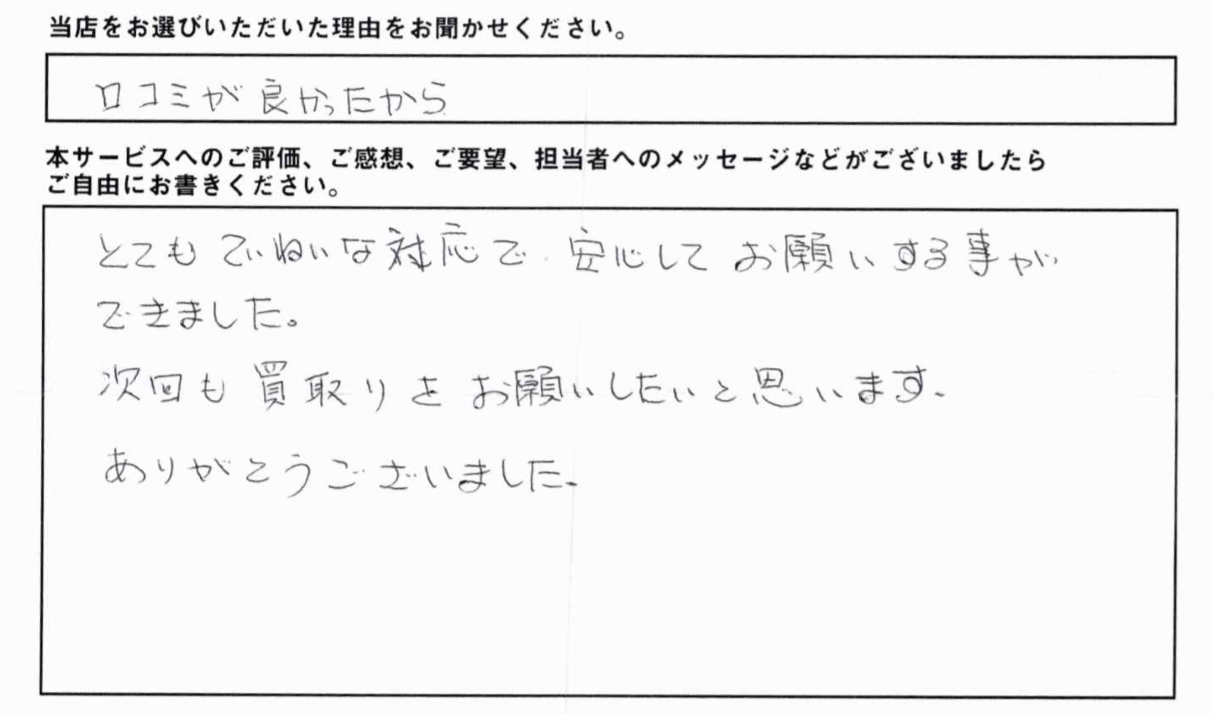 当店をお選びいただいた理由をお聞かせください。
口コミが良かったから
本サービスへのご評価、ご感想、ご要望、担当者へのメッセージなどがございましたら
ご自由にお書きください。
とてもていねいな対応で、安心してお願いする事が
できました。
次回も買取りをお願いしたいと思います。
ありがとうございました。